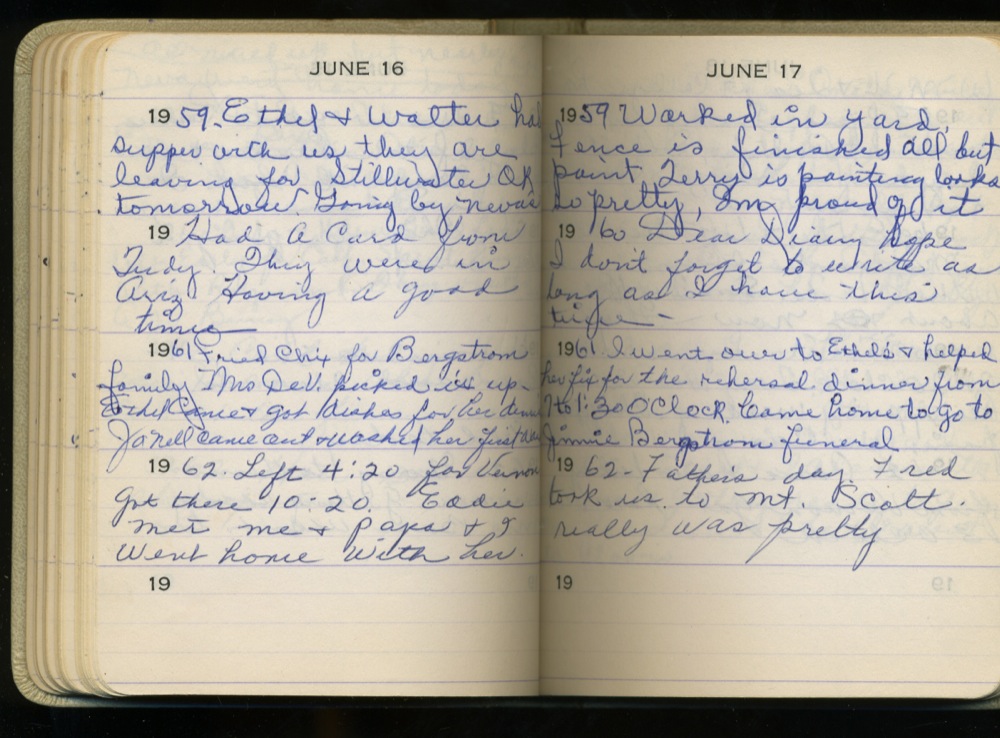 JUNE 16
1959. Ethel & Walter had
supper with us they are
leaving for Stillwater Ok
tomorrow. Going by
19 Had a Card from
Judy. They were in
Ariz Having a good
time
1961 Fried Chix for Bergstrom
family Mrs DeV. picked it up-
Ethel Came & got dishes for her
Janell came out & washed her first
1962. Left 4:20 for Vernon
got there 10-20. Eddie
met me & Papa & I
Went home with her.
19
JUNE 17
1959 Worked in yard,
Fence is finished all but
paint, Jerry is painting looks
so pretty, Im proud of it
1960 Dear Diary hope
I don't forget to write as
long as I have this
time -
1961 I went over to Ethels & helped
her fix for the rehersal dinner from
7 to 1:30 OClock. Came home to go to
Jimmie Bergstrom funeral
1962 - Fathers day Fred
took us to Mt. Scott.
really was pretty
19